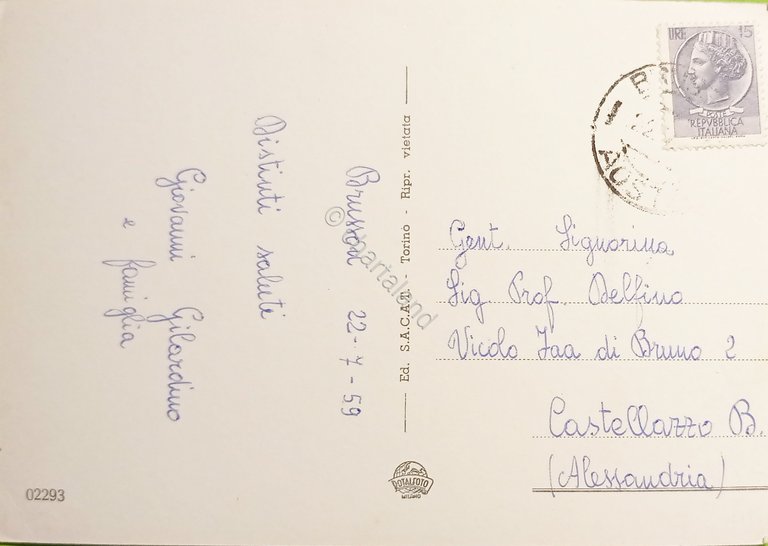 Brusson 22-7-59
Distinti saluti
Giovanni Gilardino
e famiglia
Ed. S.A.C.A.T. - Torino - Ripr. vietata
LIRE 15
POSTE
REPVBBLICA
ITALIANA
AOST
Gent. Signorina
Sig. Prof. Delfino
Vicolo Jaa di Bruno 2
Castellazzo B.
(Alessandria)
ROTALFOTO
MILANO
02293
© bartaland